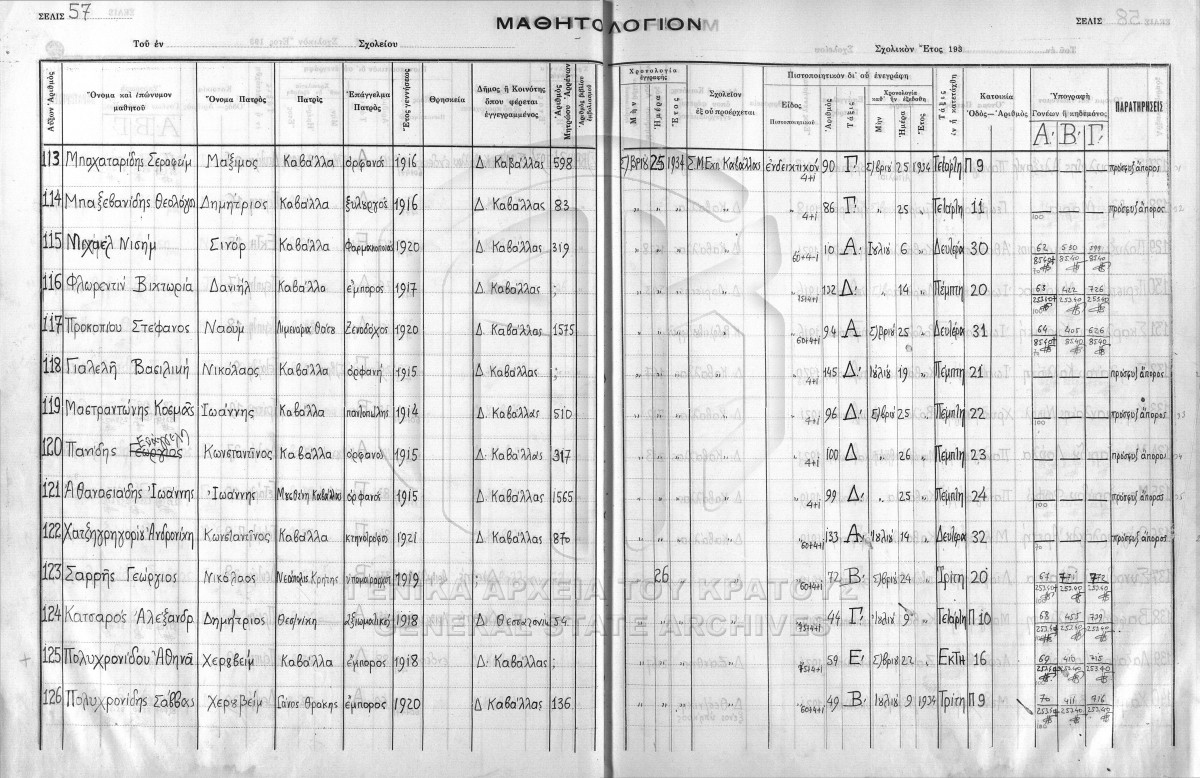 ΣΕΛΙΣ 57
ΜΑΘΗΤΟΛΟΓΙΟΝ
ΣΕΛΙΣ
Τοῦ ἐν Σχολείου
Σχολικὸν Ἔτος 193
Αὔξων Ἀριθμὸς Ὄνομα καὶ ἐπώνυμον μαθητοῦ Ὄνομα Πατρὸς Πατρὶς Ἐπάγγελμα Πατρὸς Ἔτος γεννήσεως Θρησκεία Δῆμος ἢ Κοινότης ὅπου φέρεται ἐγγεγραμμένος Ἀριθμὸς Μητρώου Ἀρρένων Ἀριθμὸς βιβλίου
Χρονολογία ἐγγραφῆς Μὴν Ἡμέρα Ἔτος Σχολεῖον ἐξ οὗ προέρχεται Πιστοποιητικὸν δι' οὗ ἐνεγράφη Εἶδος Πιστοποιητικοῦ Ἀριθμὸς Τάξις Χρονολογία καθ' ἣν ἐξεδόθη Μὴν Ἡμέρα Ἔτος Τάξις ἐν ᾗ κατετάχθη Κατοικία Ὁδὸς—Ἀριθμὸς Ὑπογραφὴ Γονέων ἢ κηδεμόνος ΠΑΡΑΤΗΡΗΣΕΙΣ
Α' Β' Γ'
113 Μπαχαταρίδης Σεραφείμ Μάξιμος Καβάλλα ὀρφανὸς 1916 Δ. Καβάλλας 598 Σ/βρίου 25 1934 Σ.Μ.Εκπ. Καβάλλας ἐνδεικτικὸν 4+1 90 Γ! Σ/βρίου 25 1934 Τετάρτη Π 9 — — — πρόσφυξ ἄπορος
114 Μπαξεβανίδης Θεολόγος Δημήτριος Καβάλλα ξυλουργὸς 1916 Δ. Καβάλλας 83 " " " " " " 4+1 86 Γ! " 25 " Τετάρτη 11 — 100 — — πρόσφυξ ἄπορος
115 Νισήμ Σινὸρ Καβάλλα 1920 Δ. Καβάλλας 319 " " " " " " 60+4-1 10 Α! Ἰουλίου 6 " Δευτέρα 30 62 530 8540 8540
116 Φλωρεντίν Βικτωρία Δανιήλ Καβάλλα ἔμπορος 1917 Δ Καβάλλας ; " " " " " " 132 Δ! " 14 " Πέμπτη 20 63 422 726 25340 25340 25340 100
117 Προκοπίου Στέφανος Ναούμ Λιμενάρια Θάσου Ξενοδόχος 1920 Δ. Καβάλλας 1575 " " " " " " 60+4+1 94 Α Σ/βρίου 25 " Δευτέρα 31 64 405 626 8540 8540 8540 100
118 Γιαλελῆ Βασιλική Νικόλαος Καβάλλα ὀρφανή 1915 Δ Καβάλλας ; " " " " " " 4+1 145 Δ! Ἰουλίου 19 " Πέμπτη 21 — — — πρόσφυξ ἄπορος
119 Μαστραντώνης Κοσμᾶς Ἰωάννης Καβάλλα παντοπώλης 1914 Δ Καβάλλας 510 " " " " " " 4+1 96 Δ! Σ/βρίου 25 " Πέμπτη 22 — 100 — — πρόσφυξ ἄπορος
120 Πανίδης Γεώργιος Κωνσταντῖνος Καβάλλα ὀρφανὸς 1915 Δ. Καβάλλας 317 " " " " " " 4+1 100 Δ " 26 " Πέμπτη 23 — — — πρόσφυξ ἄπορος
121 Ἀθανασιάδης Ἰωάννης Ἰωάννης Καβάλλας ὀρφανὸς 1915 Δ. Καβάλλας 1565 " " " " " " 4+1 99 Δ! " 25 " Πέμπτη 24 — 100 — — πρόσφυξ ἄπορος
122 Χατζηγρηγορίου Ἀνδρονίκη Κωνσταντῖνος Καβάλλα κτηνοτρόφος 1921 Δ. Καβάλλας 870 " " " " " " 60+4+1 133 Α Ἰουλίου 14 " Δευτέρα 32 — 70 — — πρόσφυξ ἄπορος
123 Σαρρῆς Γεώργιος Νικόλαος Νεάπολις Κρήτης 1919 ; ; " 26 " " " " 60+4+1 72 Β! Σ/βρίου 24 " Τρίτη 20 67 771 772 25340 25340 25340
124 Κατσαρὸς Ἀλέξανδρ Δημήτριος Θεσ/νίκη ἀξιωματικὸς 1918 Δ Θεσσ/νίκη 54 " " " " " " 44 Γ! Ἰουλίου 9 " Τετάρτη Π 10 68 453 739 25340 25240 25340
125 Πολυχρονίδου Ἀθηνᾶ Χερουβείμ Καβάλλα ἔμπορος 1918 Δ. Καβάλλας ; " " " " " " 59 Ε! Σ/βρίου 22 " ΕΚΤΗ 16 69 410 715 25340 25340
126 Πολυχρονίδης Σάββας Χερουβείμ Γάνος Θράκης ἔμπορος 1920 Δ Καβάλλας 136 " " " " " " 60+4+1 49 Β! Ἰουλίου 9 1934 Τρίτη Π 9 70 411 716 25340 25240 25340
ΓΕΝΙΚΑ ΑΡΧΕΙΑ ΤΟΥ ΚΡΑΤΟΥΣ
GENERAL STATE ARCHIVES